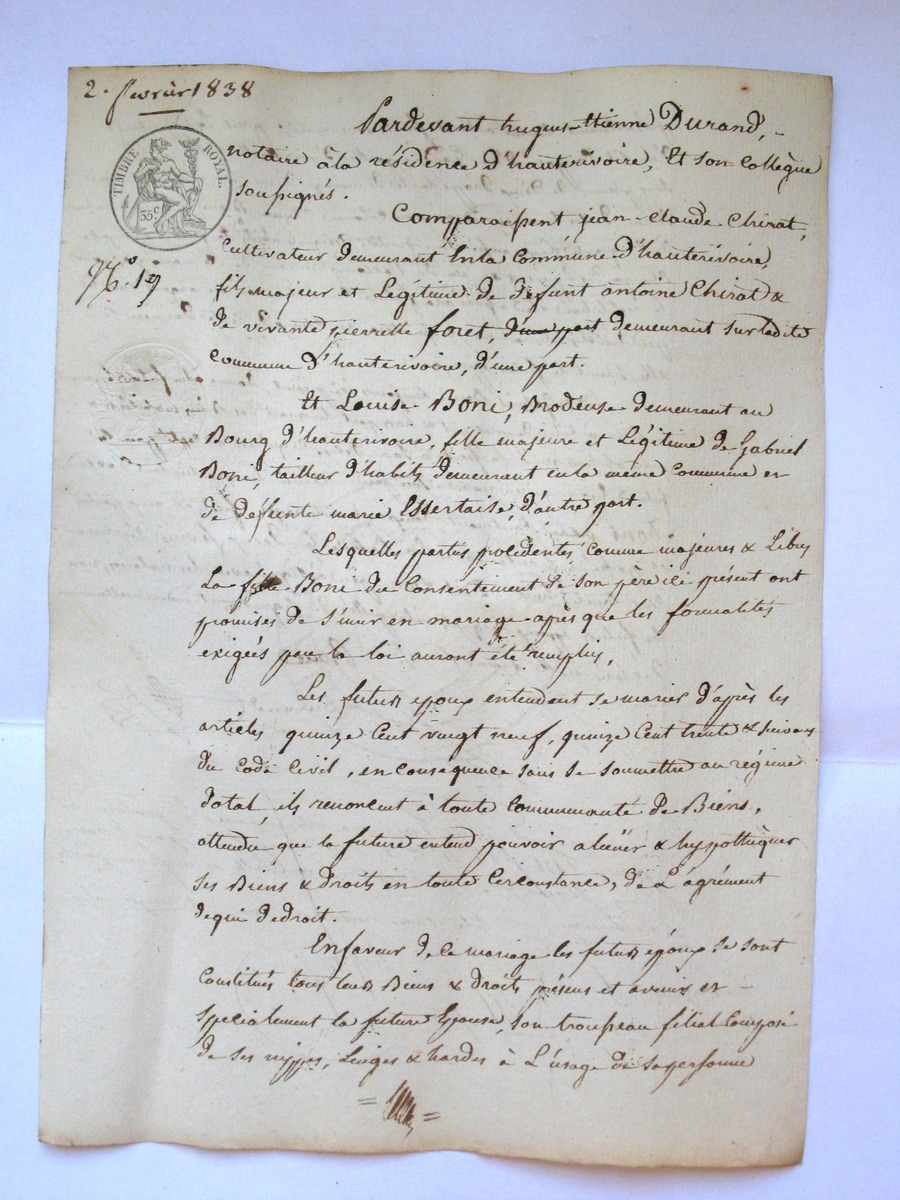 2. fevrier 1838
Pardevant hugues-Etienne Durand,
notaire à la résidence d'hauterivoire, Et son Collègue
soussignés.
TIMBRE ROYAL.
35c
Comparaissent jean-claude Chirat,
Cultivateur demeurant En la Commune d'hauterivoire,
fils majeur et Légitime de défunt antoine Chirat &
de vivante pierrette foret, d'une part demeurant sur ladite
commune d'hauterivoire, d'une part.
Et Louise Boni, Brodeuse demeurant au
Bourg d'hauterivoire, fille majeure et Légitime de Gabriel
Boni, tailleur d'habits demeurant en la même Commune et
de défunte marie Essertaise, d'autre part.
Lesquelles parties procédentes comme majeures & Libres
La fille Boni du Consentement de son père ici présent ont
promises de s'unir en mariage après que les formalités
exigées par la loi auront été remplies.
Les futurs epoux entendent se marier d'après les
articles quinze Cent vingt neuf, quinze Cent trente & suivans
du Code Civil, en consequence sans se soumettre au régime
dotal, ils renoncent à toute Communauté de Biens,
attendu que la future entend pouvoir aliéner & hypothéquer
ses Biens & droits en toute Circonstance, de L'agrément
de qui de droit.
En faveur de ce mariage les futurs époux se sont
Constitués tous leurs Biens & droits présens et avenirs et
spécialement la future Epouse, son trousseau filial Composé
de ses nippes, Linges & hardes à L'usage de sa personne